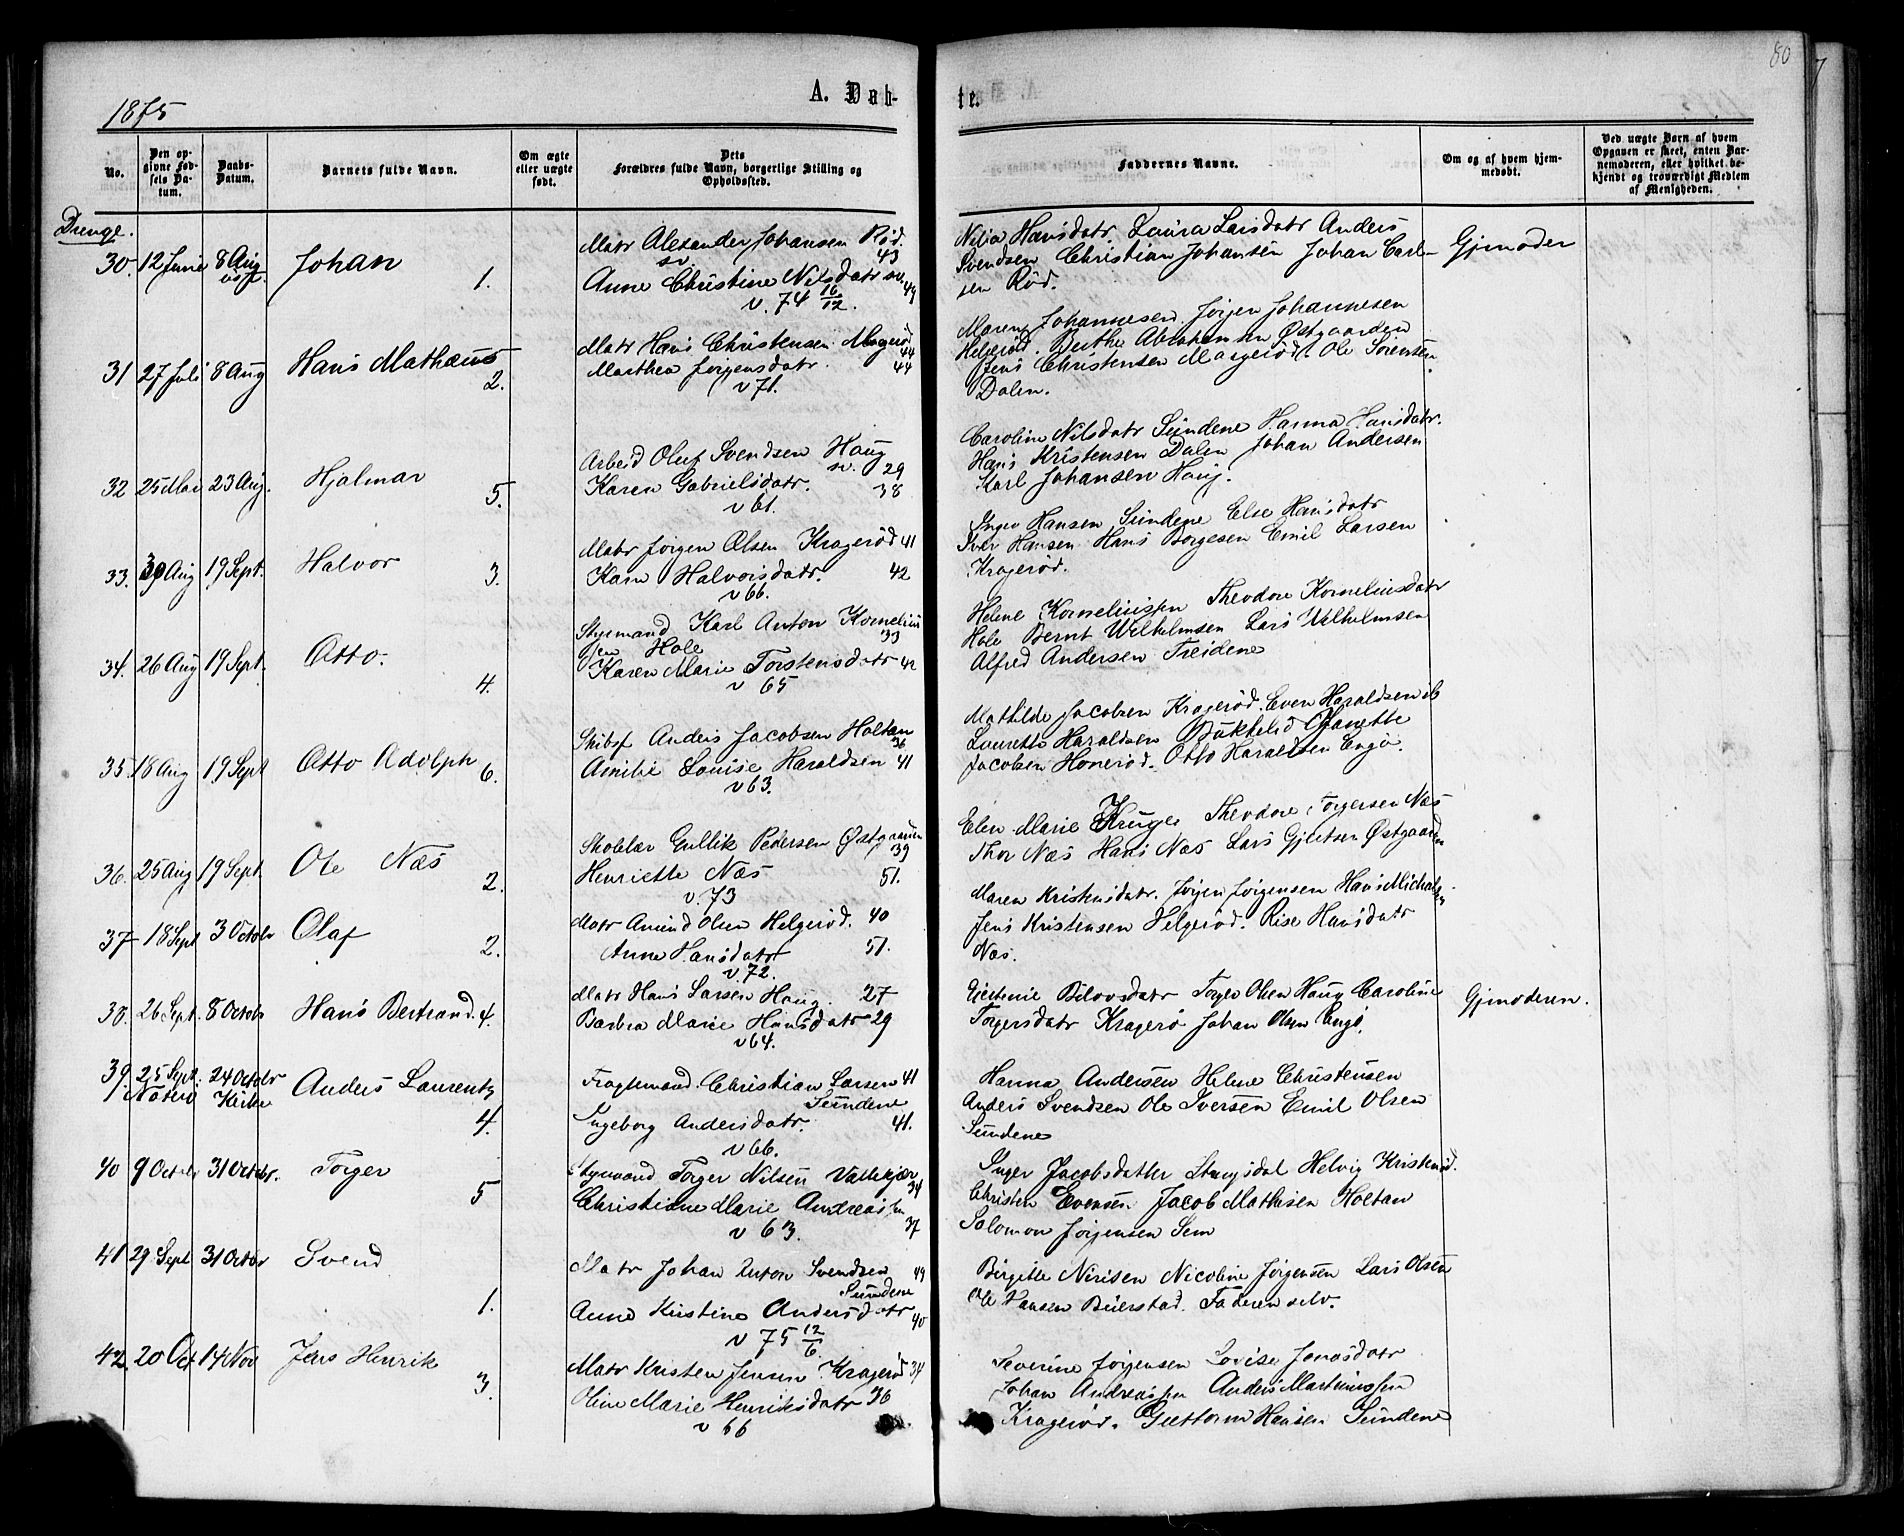 80
1875
A. Døb-
te.
No.
Den op-
givne Fød-
sels Da-
tum.
Daabs-
Datum.
Barnets fulde Navn.
Om ægte
eller uægte
født.
Dets
Forældres fulde Navn, borgerlige Stilling og
Opholdssted.
Faddernes Navne.
Om og af hvem hjem-
medøbt.
Ved uægte Børn af hvem
Opgaven er skeet, enten Bar-
nemoderen, eller hvilket be-
kjendt og troværdigt Medlem
af Menigheden.
Drenge.
30. 12 Junie 8 Aug Johan 1.
Matr Alexander Johansen Rød. 43
Anne Christine Nilsdatr 49
v. 74 16/12.
Hansdatr Laura Larsdatr Anders
Svendsen Christian Johansen Johan Carl-
sen Rød.
Gjmoder
31 27 Juli 8 Aug Hans Mathæus 2.
Matr Hans Christensen Magerød 44
Marthea Jørgensdatr. 44
v 71.
Maren Johannesen Jørgen Johannesen
Helgerød. Berthe Abrahamsen Østgaarden
Jens Christensen Magerød. Ole Sørensen
Dalen.
32 25 Mai 23 Aug. Hjalmar 5.
Arbeid Oluf Svendsen Haug 29
Karen Gabrielsdatr. 38
v 61.
Caroline Nilsdatr Sundene Hanna Hansdatr.
Hans Kristensen Dalen Johan Andersen
Karl Johansen Haug.
33. 30 Aug 19 Sept. Halvor 3.
Matr Jørgen Olsen Kragerød 41
Karn Halvorsdatr. 42
v 66.
Inger Hansen Sundene Else Hansdatr
Iver Hansen Hans Borgesen Emil Larsen
Kragerød.
34. 26 Aug 19 Sept. Otto. 4.
Styrmand Karl Anton Kornelius 33
sen Hole
Karen Marie Torstensdatr 42
v 65
Helene Korneliussen Theodore Korneliusdatr
Hole Bernt Wilhelmsen Lars Wilhelmsen
Alfred Andersen Treidene
35. 18 Aug 19 Sept Otto Adolph 6.
Skibsf Anders Jacobsen Holtan 36
Amilie Louise Haraldsen 41
v 63.
Mathilde Jacobsen Kragerød. Even Haraldsen
Laurette Haraldsen Buktelid Janette
Jacobsen Honerød. Otto Haraldsen Engø.
36. 25 Aug 19 Sept. Ole Næs 2.
Skolelær Gullik Pedersen Østgaarden 39
Henriette Næs 51.
v. 73
Elen Marie Kruge Theodore Torgersen Næs
Thor Næs Hans Næs Lars Gjertsen Østgaarden
37 18 Sept 3 Octobr Olaf 2.
Matr Amund Olsen Helgerød. 40
Anne Hansdatr 51.
v. 72.
Maren Kristensdatr. Jørgen Jørgensen Hans Michalsen
Jens Kristensen Helgerød. Rise Hansdatr
Næs.
38. 26 Sept. 8 Octobr Hans Bertrand. 4.
Matr Hans Larsen Haug. 27
Barbra Marie Hansdatr 29
v 64.
Torger Olsen Haug Caroline
Torgersdatr Kragerø Johan Olsen Engø.
Gjmoderen.
39. 25 Sept. 24 Octobr Anders Laurentz 4.
Nøterø Kirke
Fragtemand. Christian Larsen 41
Sundene
Ingeborg Andersdatr. 41.
v 66.
Hanna Andersen Helene Christensen
Anders Svendsen Ole Iversen Emil Olsen
Sundene
40 9 Octobr 31 Octobr. Torger 5
Styrmand Torger Nilsen Vallekjær 34
Christiane Marie Andreas 37
v 63.
Inger Jacobsdatter Stangsdal Helvig Kristensd.
Christen Evensen Jacob Mathisen Holtan
Solomon Jørgensen Sem
41 29 Sept 31 Octobr Svend 1.
Matr Johan Anton Svendsen 49
Sundene
Anne Kristine Andersdatr 40
v 75 12/6
Birgitte Nirisen Nicoline Jørgensen Lars Olsen
Ole Hansen Buerstad. Faderen selv.
42. 20 Oct. 14 Nov Jens Henrik 3.
Matr Kristen Jensen Kragerød 34
Oline Marie Henriksdatr 36
v 66
Severine Jørgensen Lovise Jonasdatr
Johan Andreassen Anders Martinussen
Kragerød. Guttorm Hansen Sundene